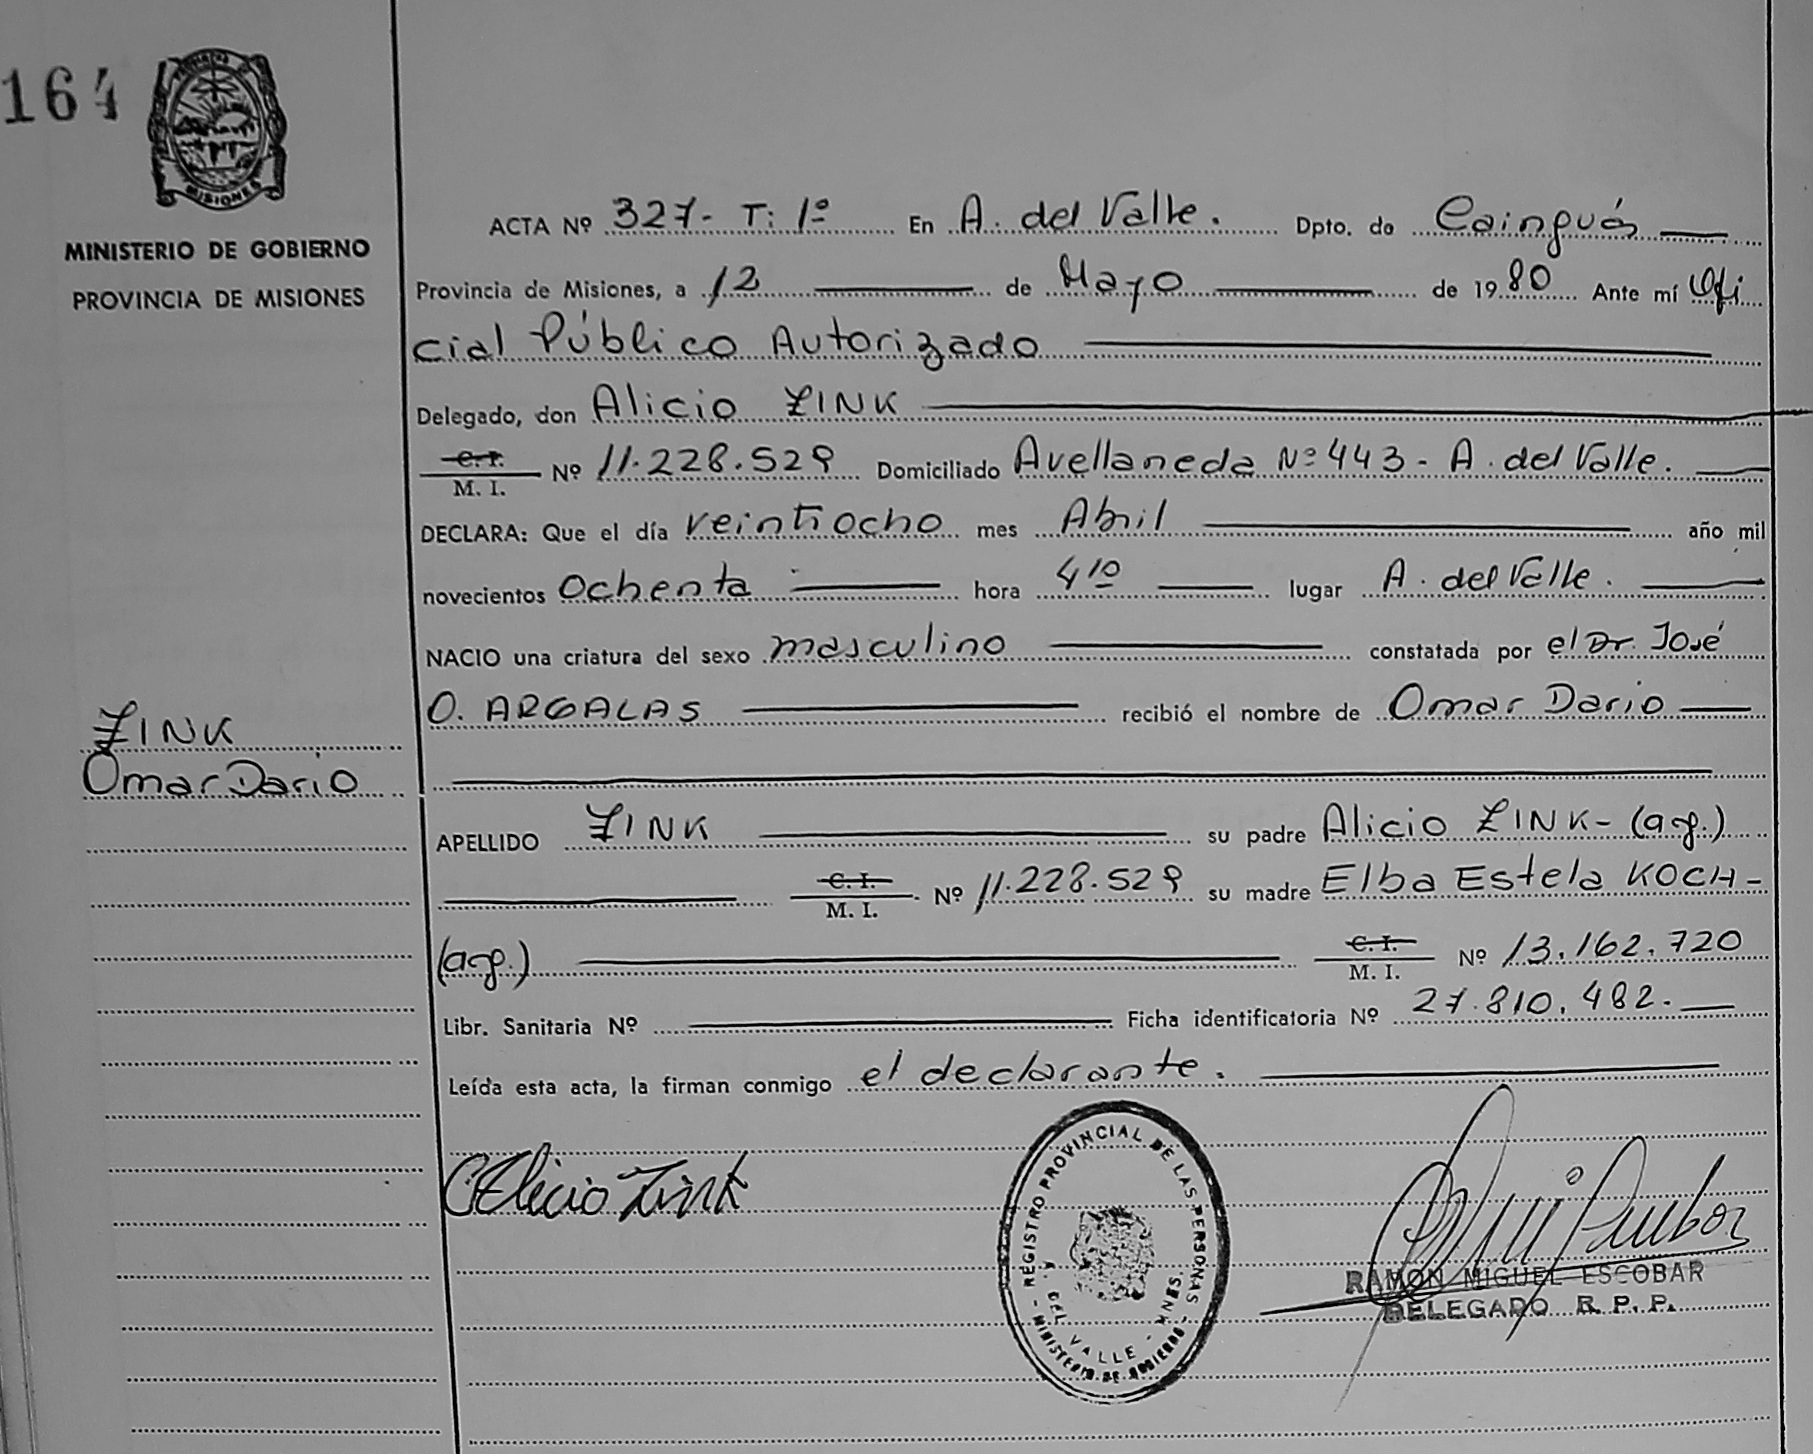 164
MISIONES
MINISTERIO DE GOBIERNO
PROVINCIA DE MISIONES
ACTA Nº 327- T: 1º En A. del Valle. Dpto. de Cainguás
Provincia de Misiones, a 12 de Mayo de 1980 Ante mí Ofi
cial Público Autorizado
Delegado, don Alicio ZINK
C. I.
M. I. Nº 11.228.529 Domiciliado Avellaneda Nº 443 - A. del Valle.
DECLARA: Que el día veintiocho mes Abril año mil
novecientos ochenta hora 4 10 lugar A. del Valle.
NACIO una criatura del sexo masculino constatada por el Dr. José
O. ARGALAS recibió el nombre de Omar Dario
ZINK
Omar Dario
APELLIDO ZINK su padre Alicio ZINK- (arg.)
C. I.
M. I. Nº 11.228.529 su madre Elba Estela KOCH-
(arg.) C. I.
M. I. Nº 13.162.720
Libr. Sanitaria Nº Ficha identificatoria Nº 27.810.482.
Leída esta acta, la firman conmigo el declarante.
Alicio Zink
- REGISTRO PROVINCIAL DE LAS PERSONAS -
MINISTERIO DE GOBIERNO
A. DEL VALLE - MNES.
RAMON MIGUEL ESCOBAR
DELEGADO R. P. P.